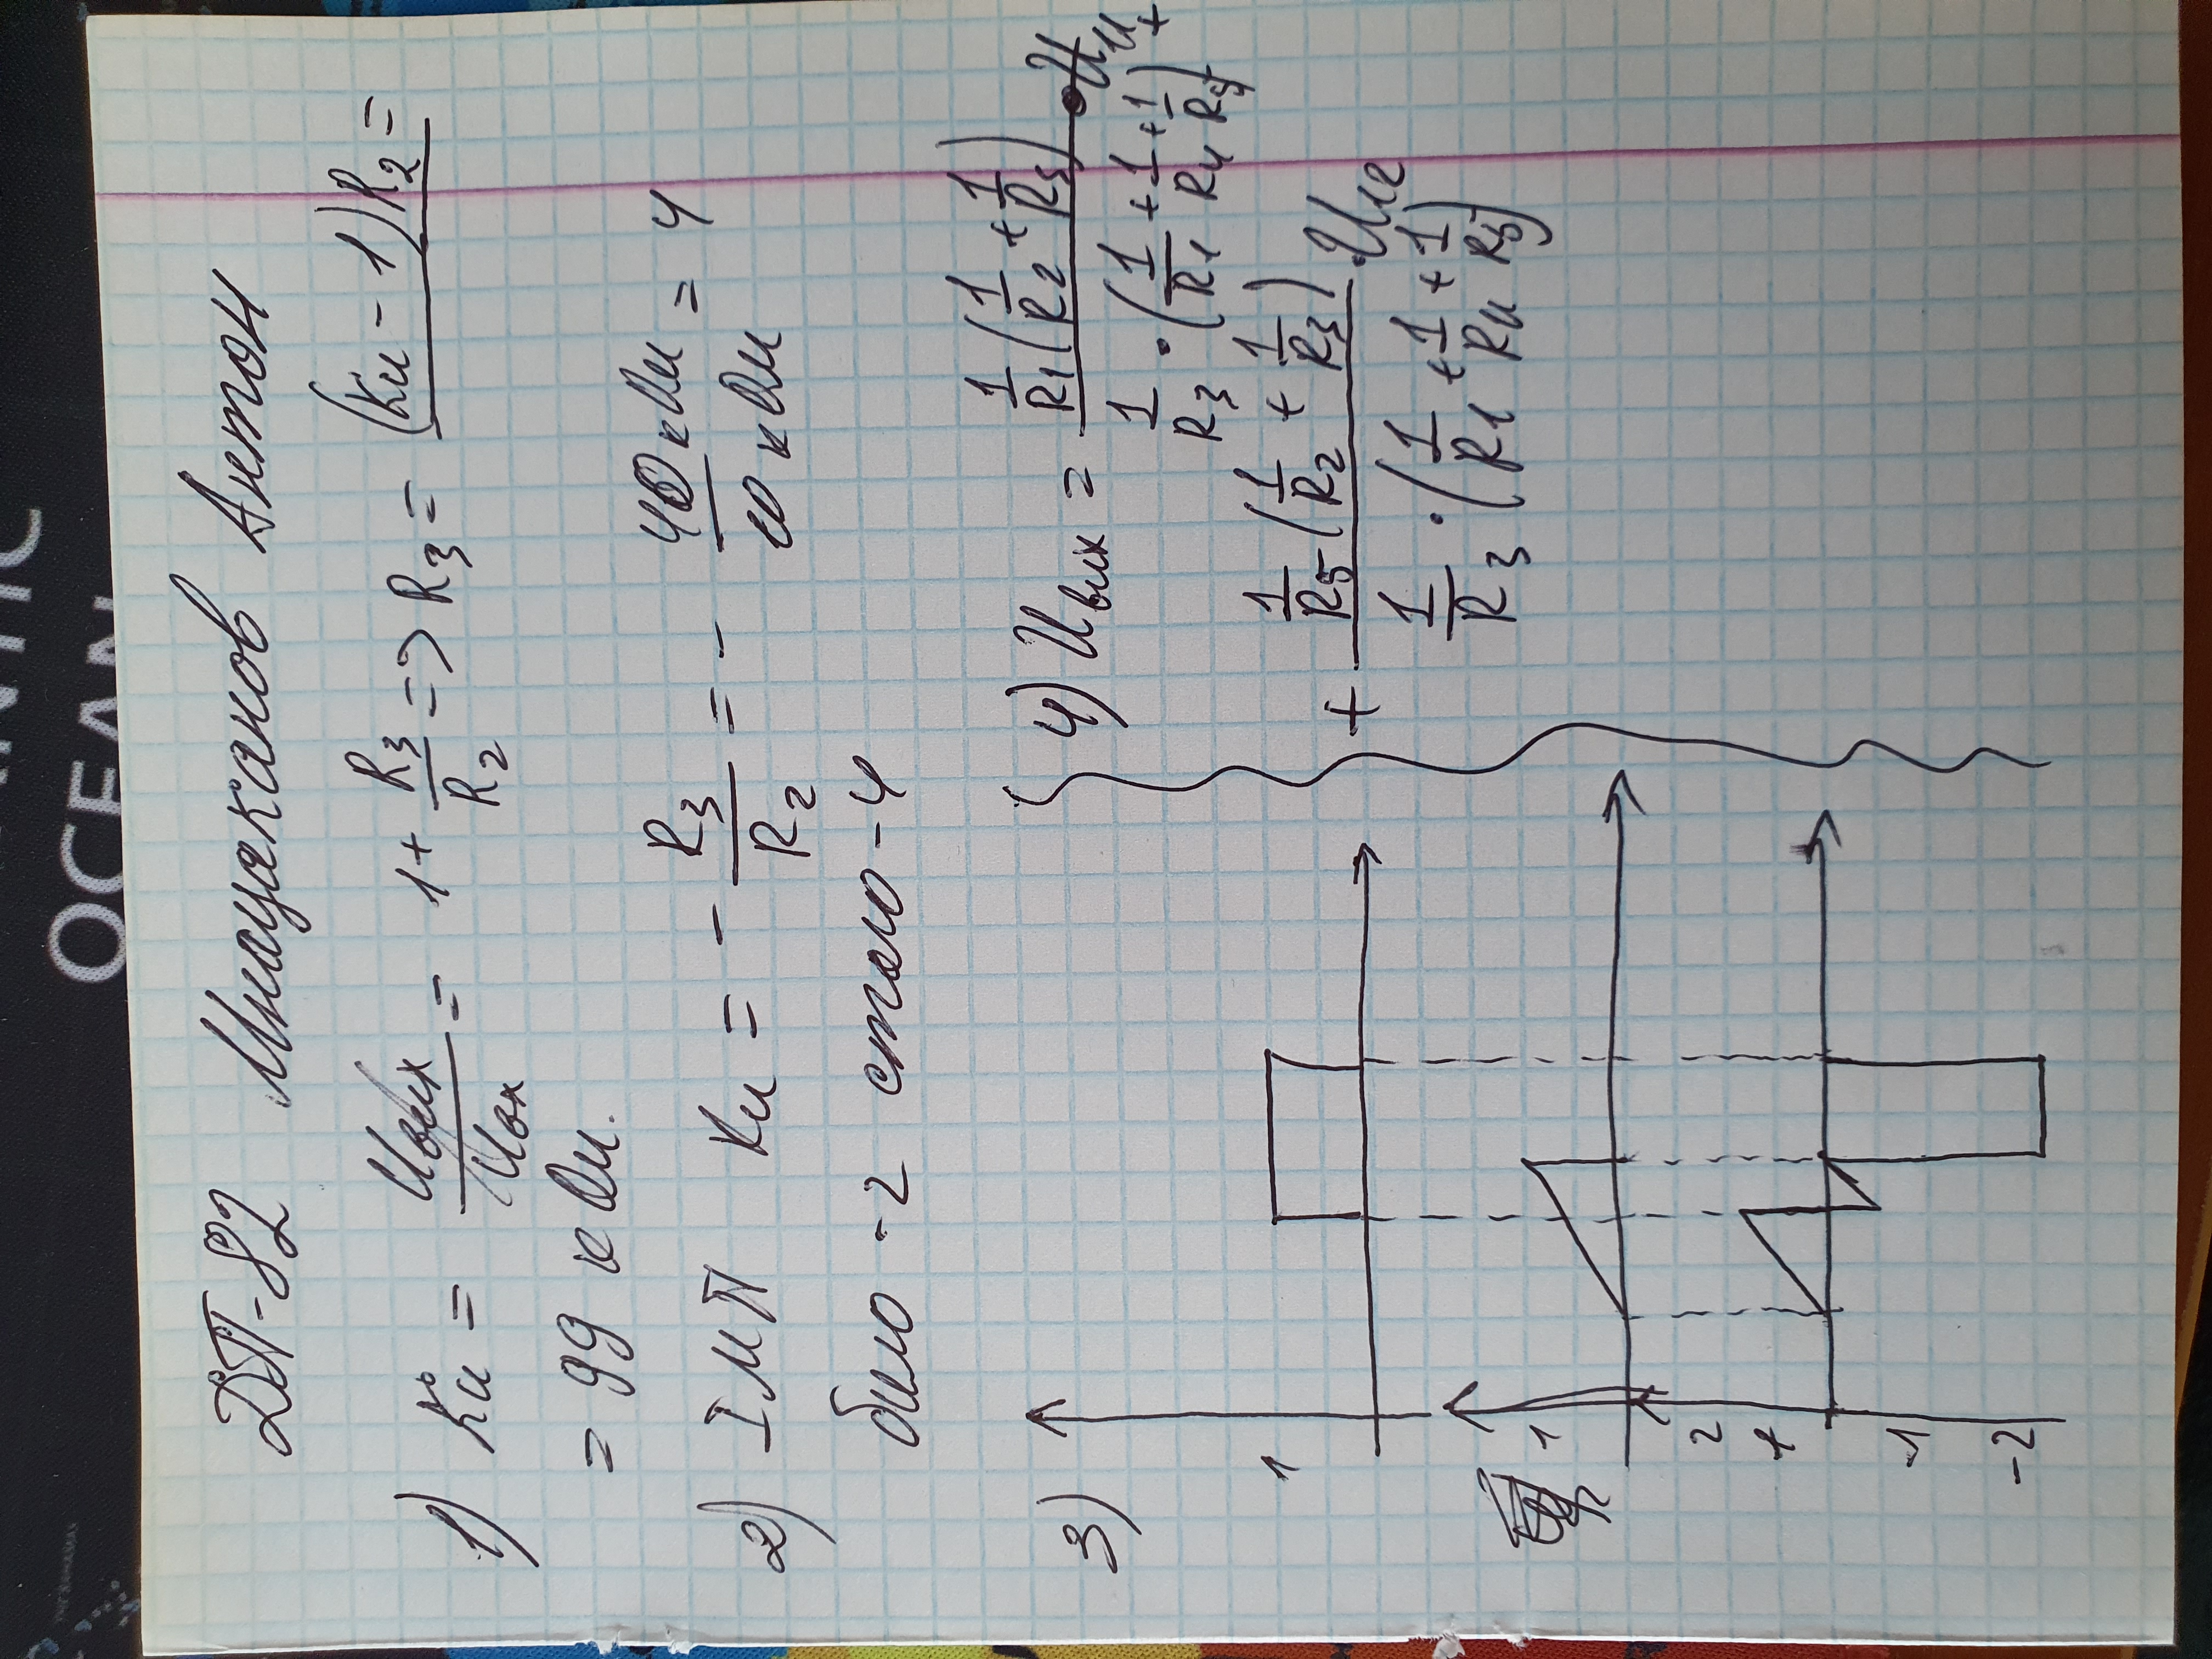 ANTIC
OCEAN
ДП-82 Мнацаканов Антон
1) Ku = Uвих/Uвх = 1 + R3/R2 => R3 = (Ku - 1)R2 =
= 99 кОм.
2) ІМП Ku = - R3/R2 = - 40 кОм/10 кОм = 4
било -2 стало -4
3)
1
1
2
1
-1
-2
4) Uвих = 1/R1 (1/R2 + 1/R3) / 1/R3 · (1/R1 + 1/R4 + 1/R5) · U11 +
+ 1/R5 (1/R2 + 1/R3) / 1/R3 · (1/R1 + 1/R4 + 1/R5) · U12